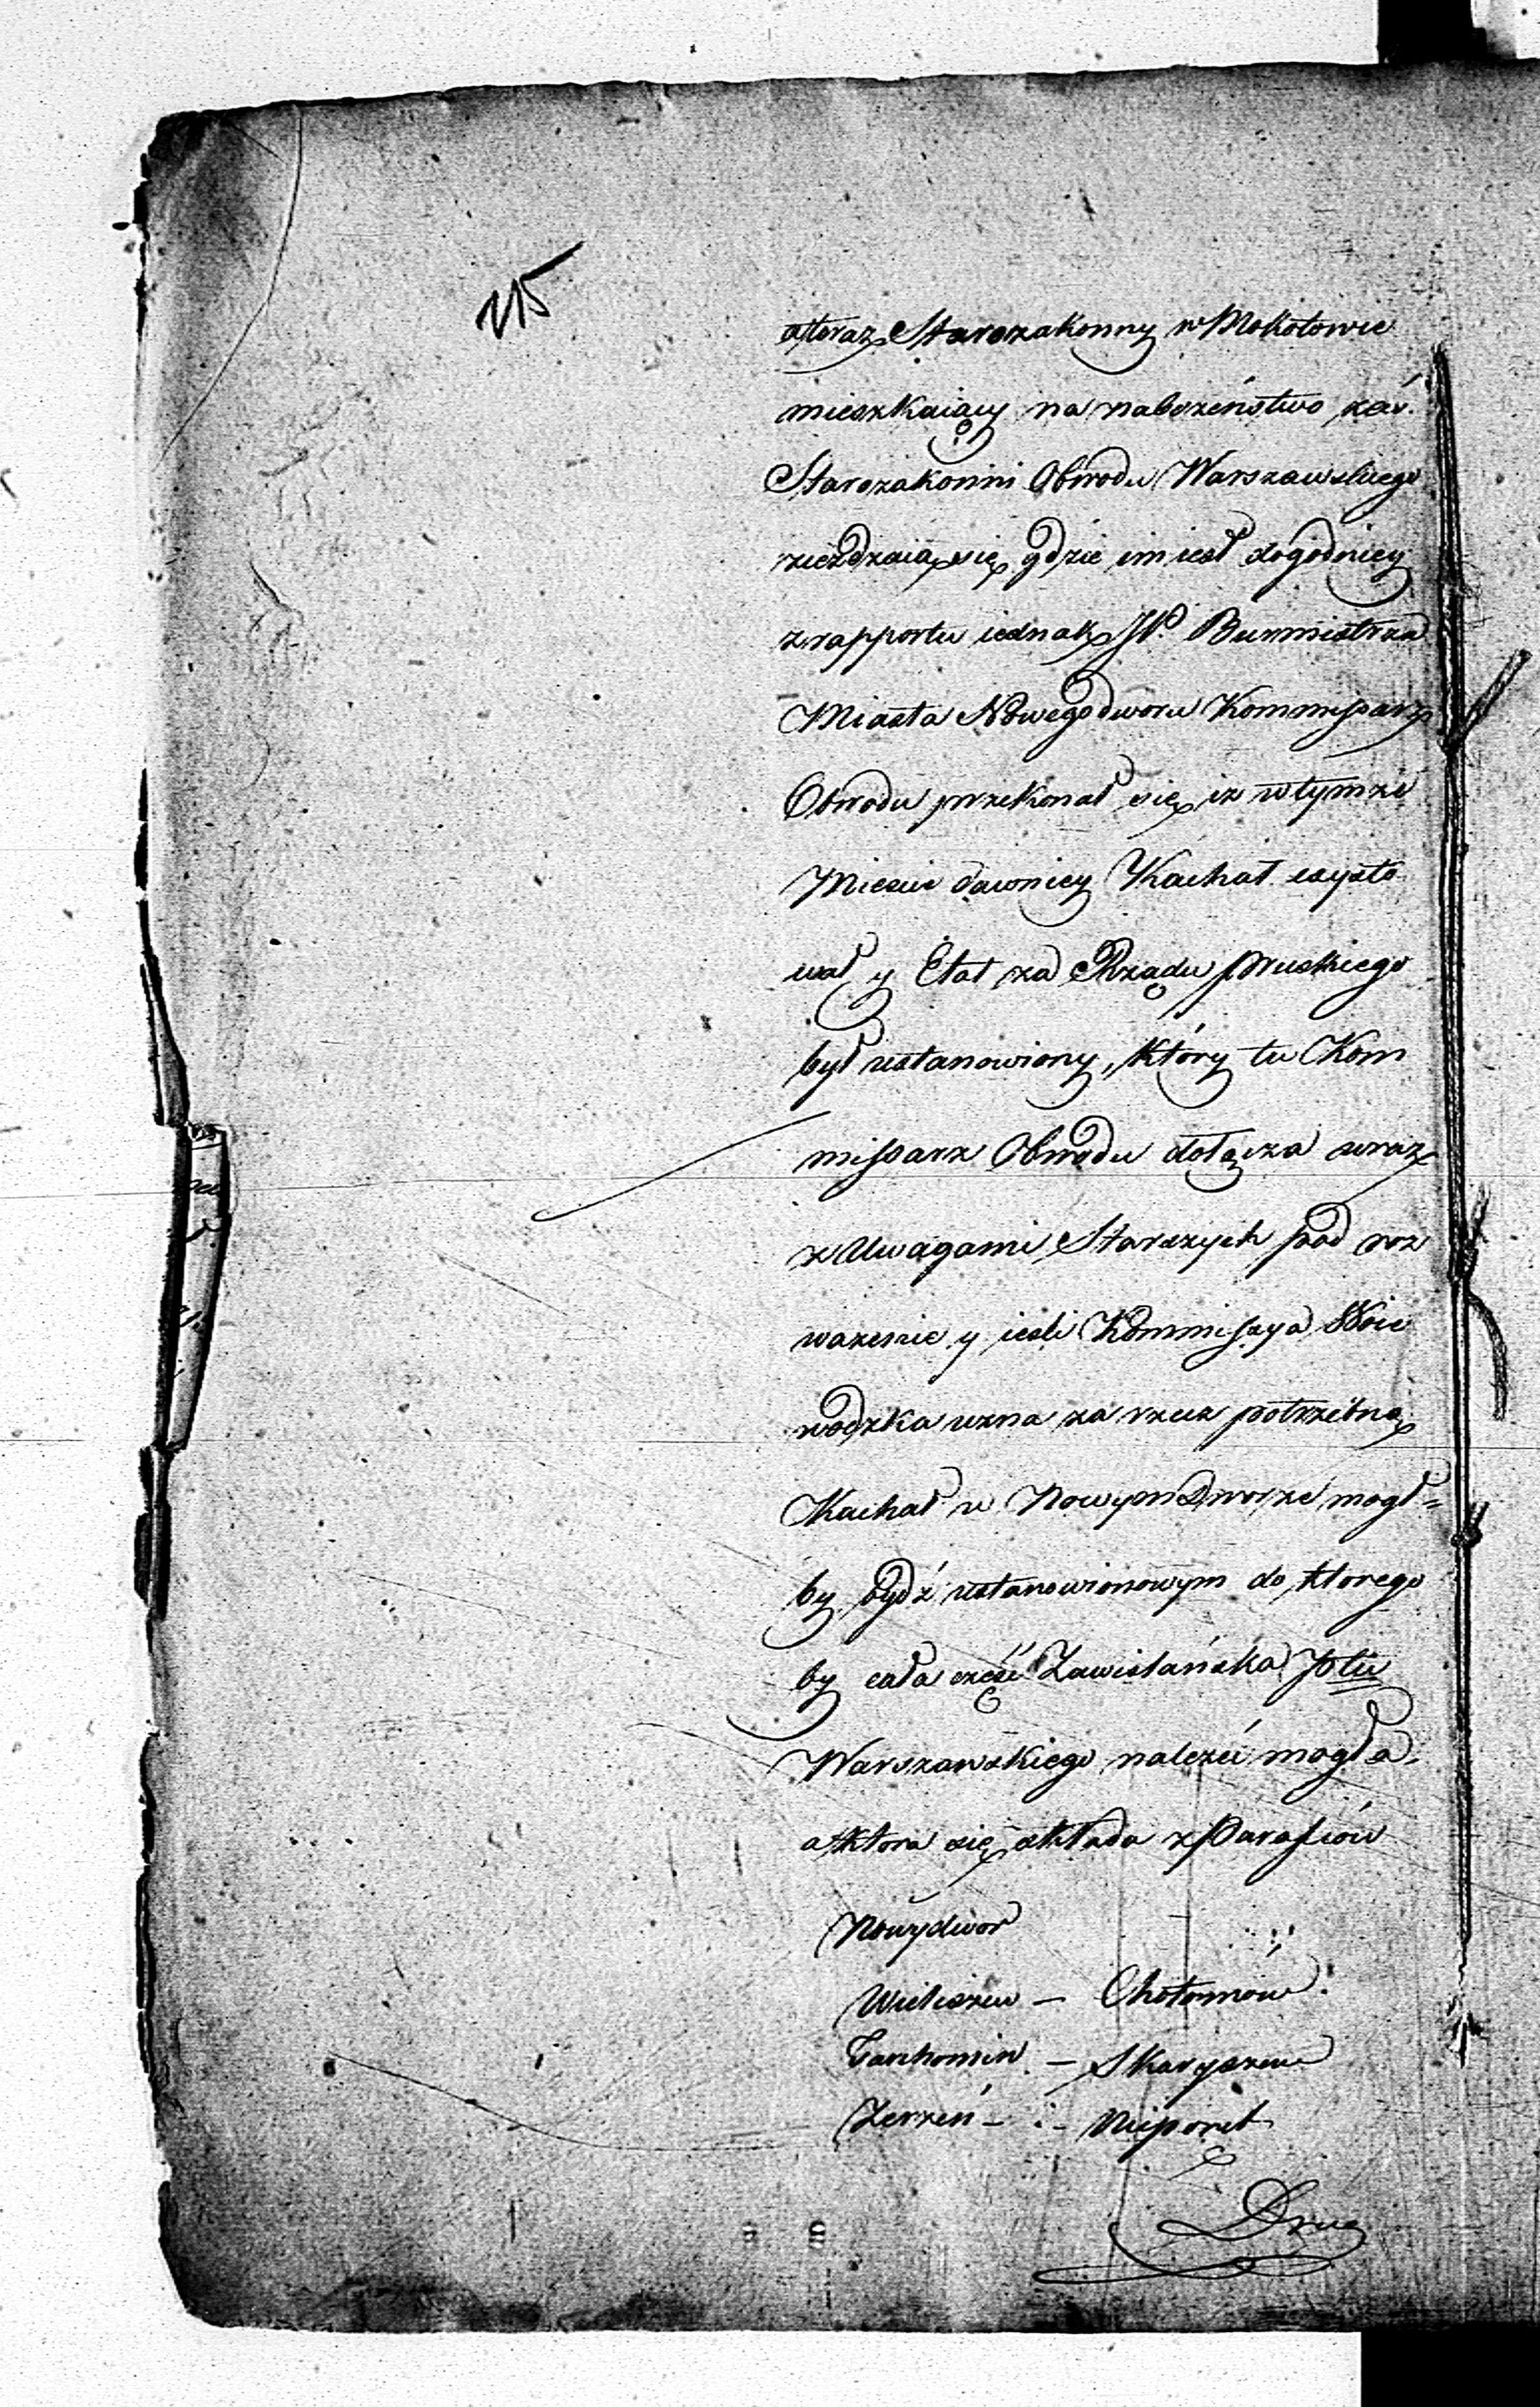 215
a teraz Starozakonny w Mokotowie
mieszkaiący na nabożeństwo zaś
Starozakonni Obwodu Warszawskiego
zieżdzaią się gdzie im iest dogodniey
z rapportu iednak JP. Burmistrza
Miasta Nowegodworu Kommissarz
Obwodu przekonał się iż w tymże
Miescie dawniey Kachał exysto
wał y Etat za Rządu pruskiego
był ustanowiony, który tu Kom
missarz Obwodu dołącza wraz
z Uwagami Starszych pod roz
ważenie y iesli Kommissya Woie
wodzka uzna za rzecz potrzebną
Kachał w Nowym Dworze mogł=
by bydź ustanowionowym do ktorego
by cała część Zawislańska
Warszawskiego należeć mogła.
a ktora się składa z Parafiów
Nowydwor
Wieliszew – Chotomów.
Tarchomin – Skaryszew
Zerzeń – Nieporęt